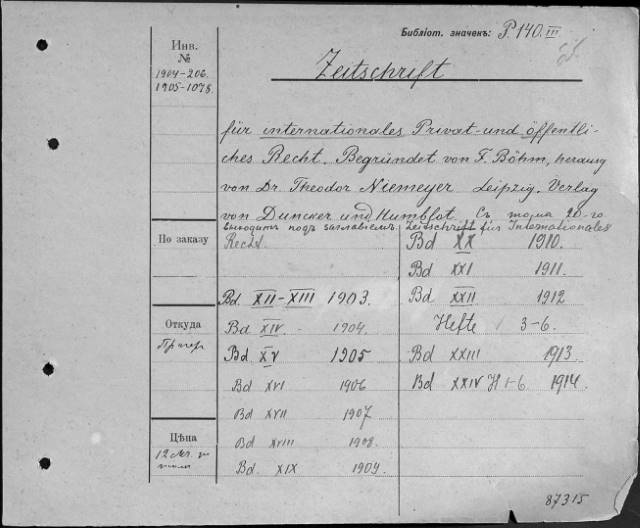 Библіот. значекъ: P. 140. III
Инв.
№
1904-206.
1905-1078.
Zeitschrift
für internationales Privat- und öffentli-
ches Recht. Begründet von F. Böhm, herausg
von Dr. Theodor Niemeyer Leipzig. Verlag
von Duncker und Humblot. Съ тома 20-го
выходитъ подъ заглавіемъ: Zeitschrift für Internationales
Recht.
По заказу
Bd. XII-XIII 1903.
Bd XIV - 1904.
Bd XV 1905
Bd XVI 1906
Bd XVII 1907
Bd XVIII 1908.
Bd. XIX 1909.
Bd XX 1910.
Bd XXI 1911.
Bd XXII 1912
Hefte 3-6.
Bd XXIII 1913
Bd XXIV H 1-6 1914.
Откуда
Цѣна
87315